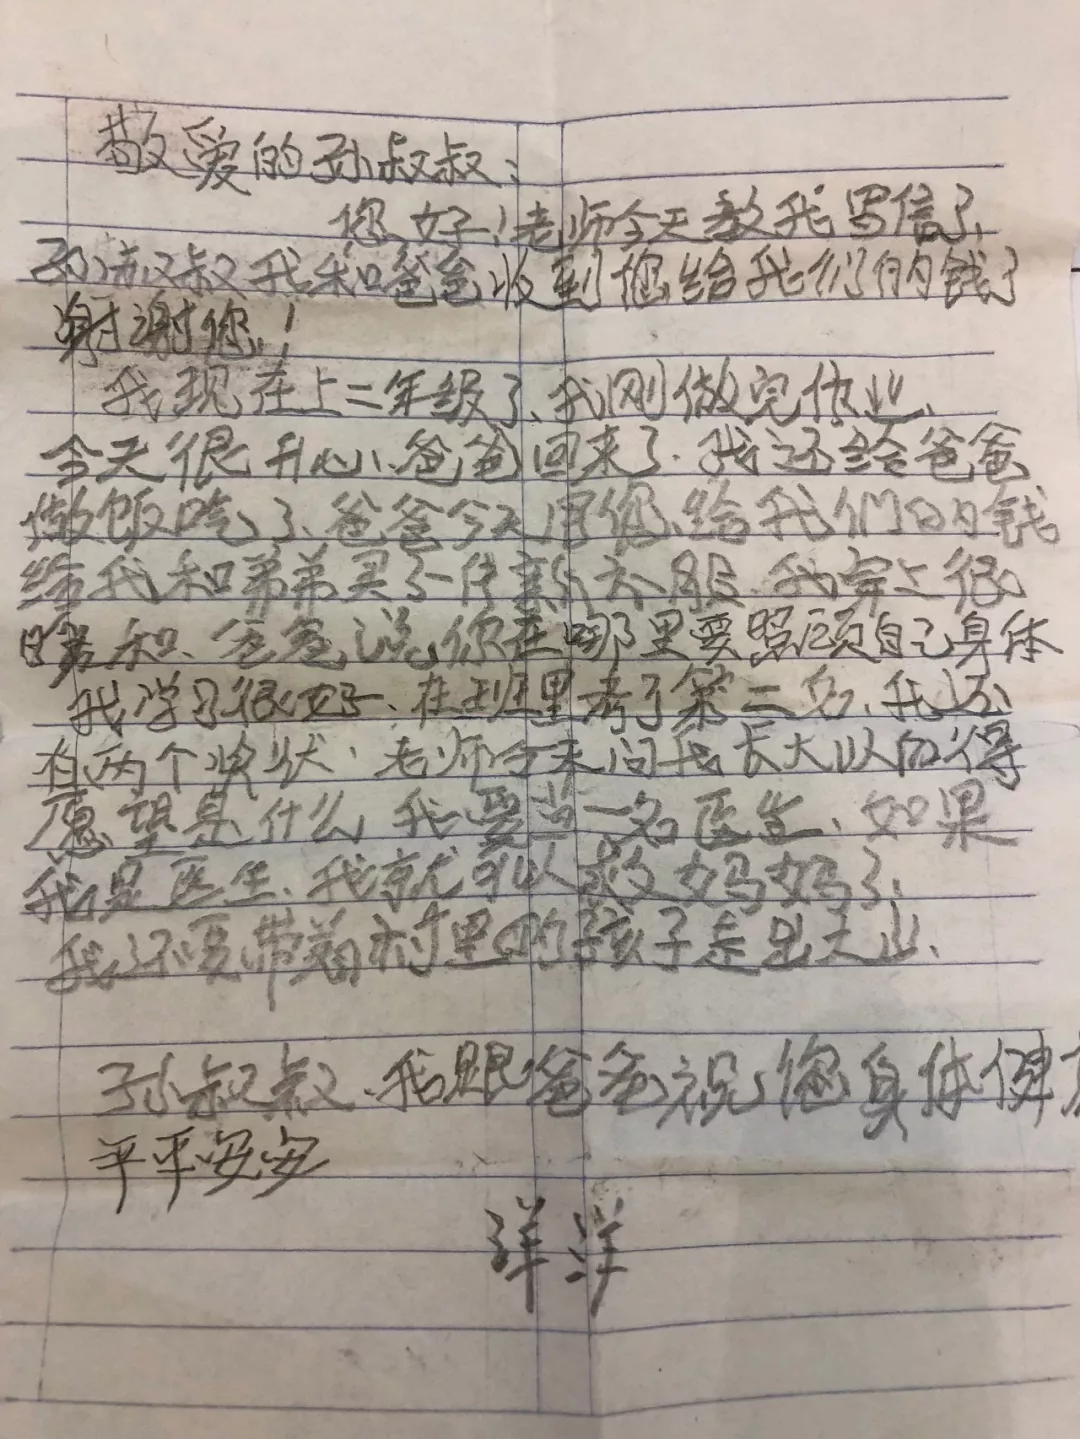 敬爱的孙叔叔：
您好！老师今天教我写信了、
孙叔叔我和爸爸收到您给我们的钱了
谢谢您！
我现在上二年级了、我刚做完作业、
今天很开心、爸爸回来了、我还给爸爸
做饭吃了、爸爸今天用您给我们的钱
给我和弟弟买了一件新衣服、我穿上很
暖和、爸爸说你在哪里要照顾自己身体
我学习很好、在班里考了第二名、我还
有两个奖状、老师今天问我长大以后得
愿望是什么 我要当一名医生、如果
我是医生、我就可以救妈妈了、
我还要带着村里的孩子走出大山、
孙叔叔、我跟爸爸祝您身体健
平平安安
洋洋